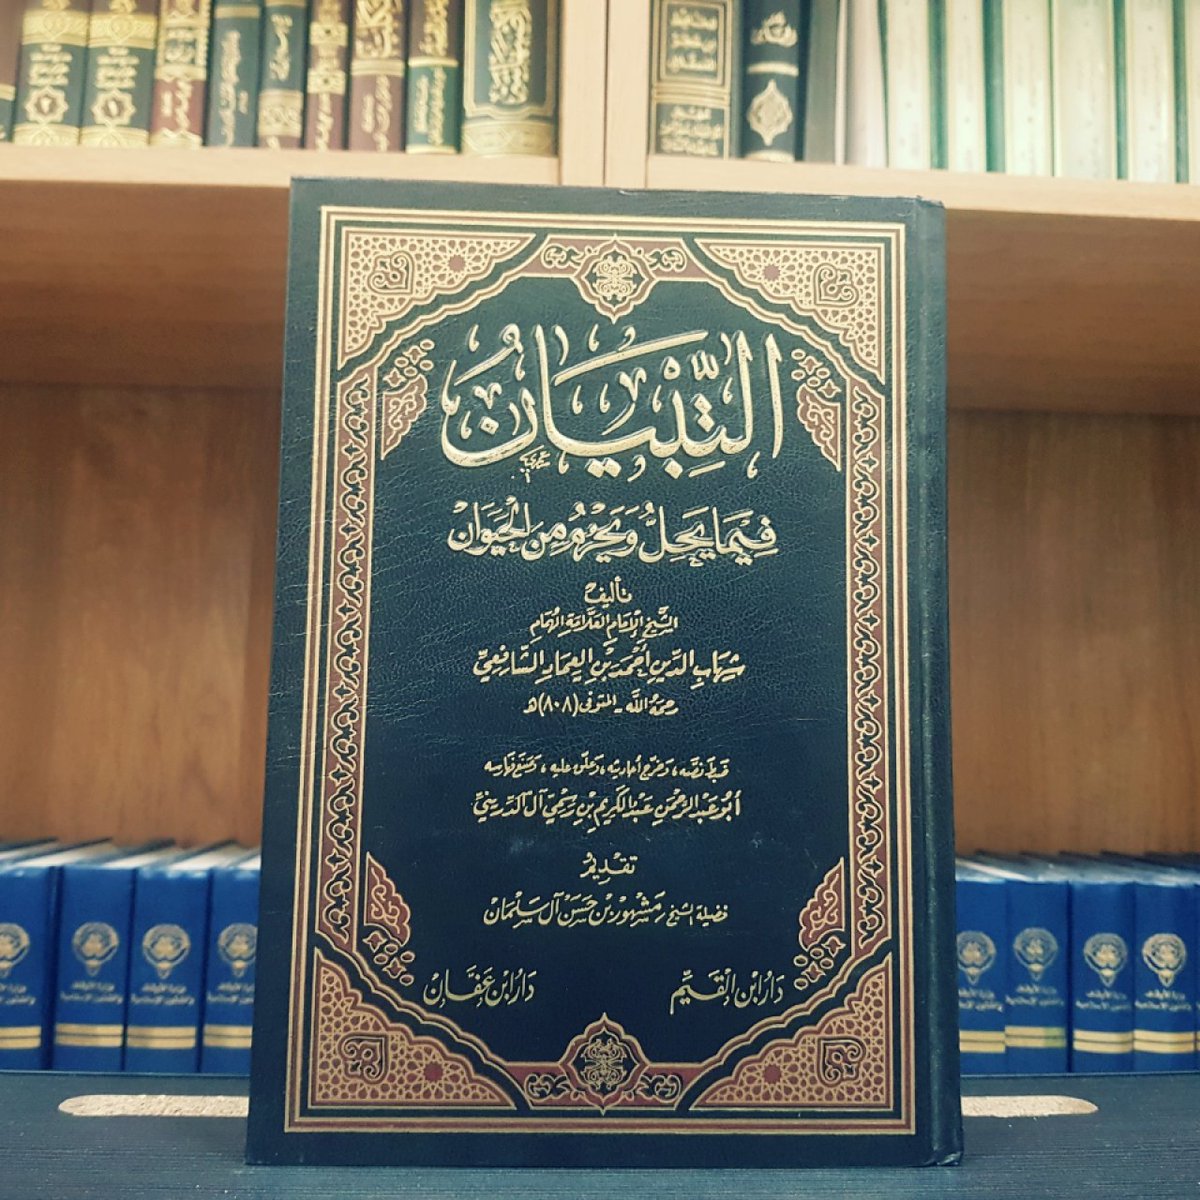 التِّبْيَانُ
فِيمَا يَحِلُّ وَيَحْرُمُ مِنَ الْحَيَوَانْ
تأليف
الشَّيْخِ الإِمَامِ العَلَّامَةِ الهُمَامِ
شِهَابِ الدِّينِ أَحْمَدَ بْنِ العِمَادِ الشَّافِعِيِّ
رحمهُ اللَّه - المتوفى (٨٠٨) هـ
ضبط نصّه، وخرّج أحاديثه، وعلّق عليه، وصنع فهارسه
أَبُو عَبْدِ الرَّحْمَنِ عَبْدُ الكَرِيمِ بْنِ رَسْمِي آل الدِّرِينِيِّ
تقديمُ
فضيلة الشيخ مَشْهُور بْنِ حَسَنْ آل سَلْمَانْ
دَارُ ابْنِ الْقَيِّمِ
دَارُ ابْنِ عَفَّانَ
وزارة الأوقاف
والشئون الإسلامية